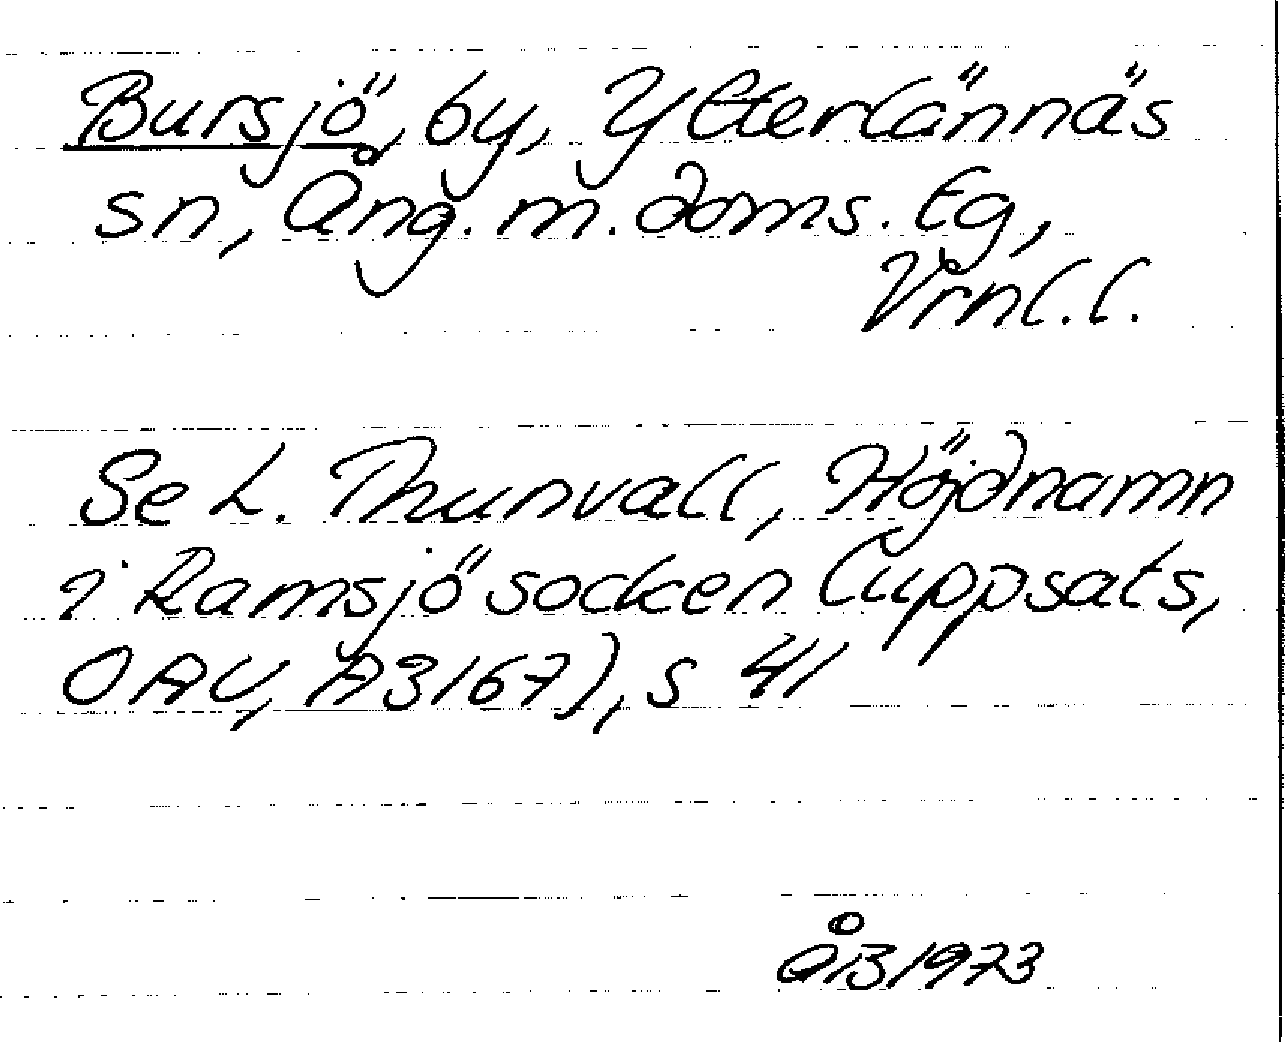 Bursjö, by, Ytterlännäs
sn, Ång. m. doms. tg,
Vrnl. l.
Se L. Thunvall, Höjdnamn
i Ramsjö socken (uppsats,
OAU, A3167), s 41
ÅB 1973